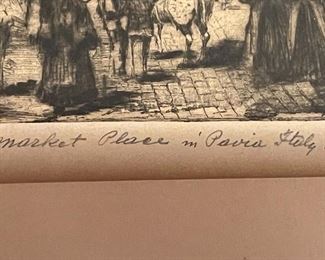 market Place in Pavia Italy